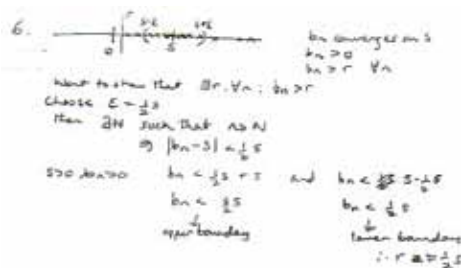 6.
r
s-ε s+ε
0 s
bn converges on s
bn > 0
bn > r ∀n
Want to show that ∃r, ∀n; bn > r
Choose ε = ½s
then ∃N such that n>N
⇒ |bn - s| < ½s
s>0, bn>0 bn < ½s + s and bn < s - ½s
bn < 3/2 s bn < ½s
↓ ↓
upper boundary lower boundary
∴ r = ½s